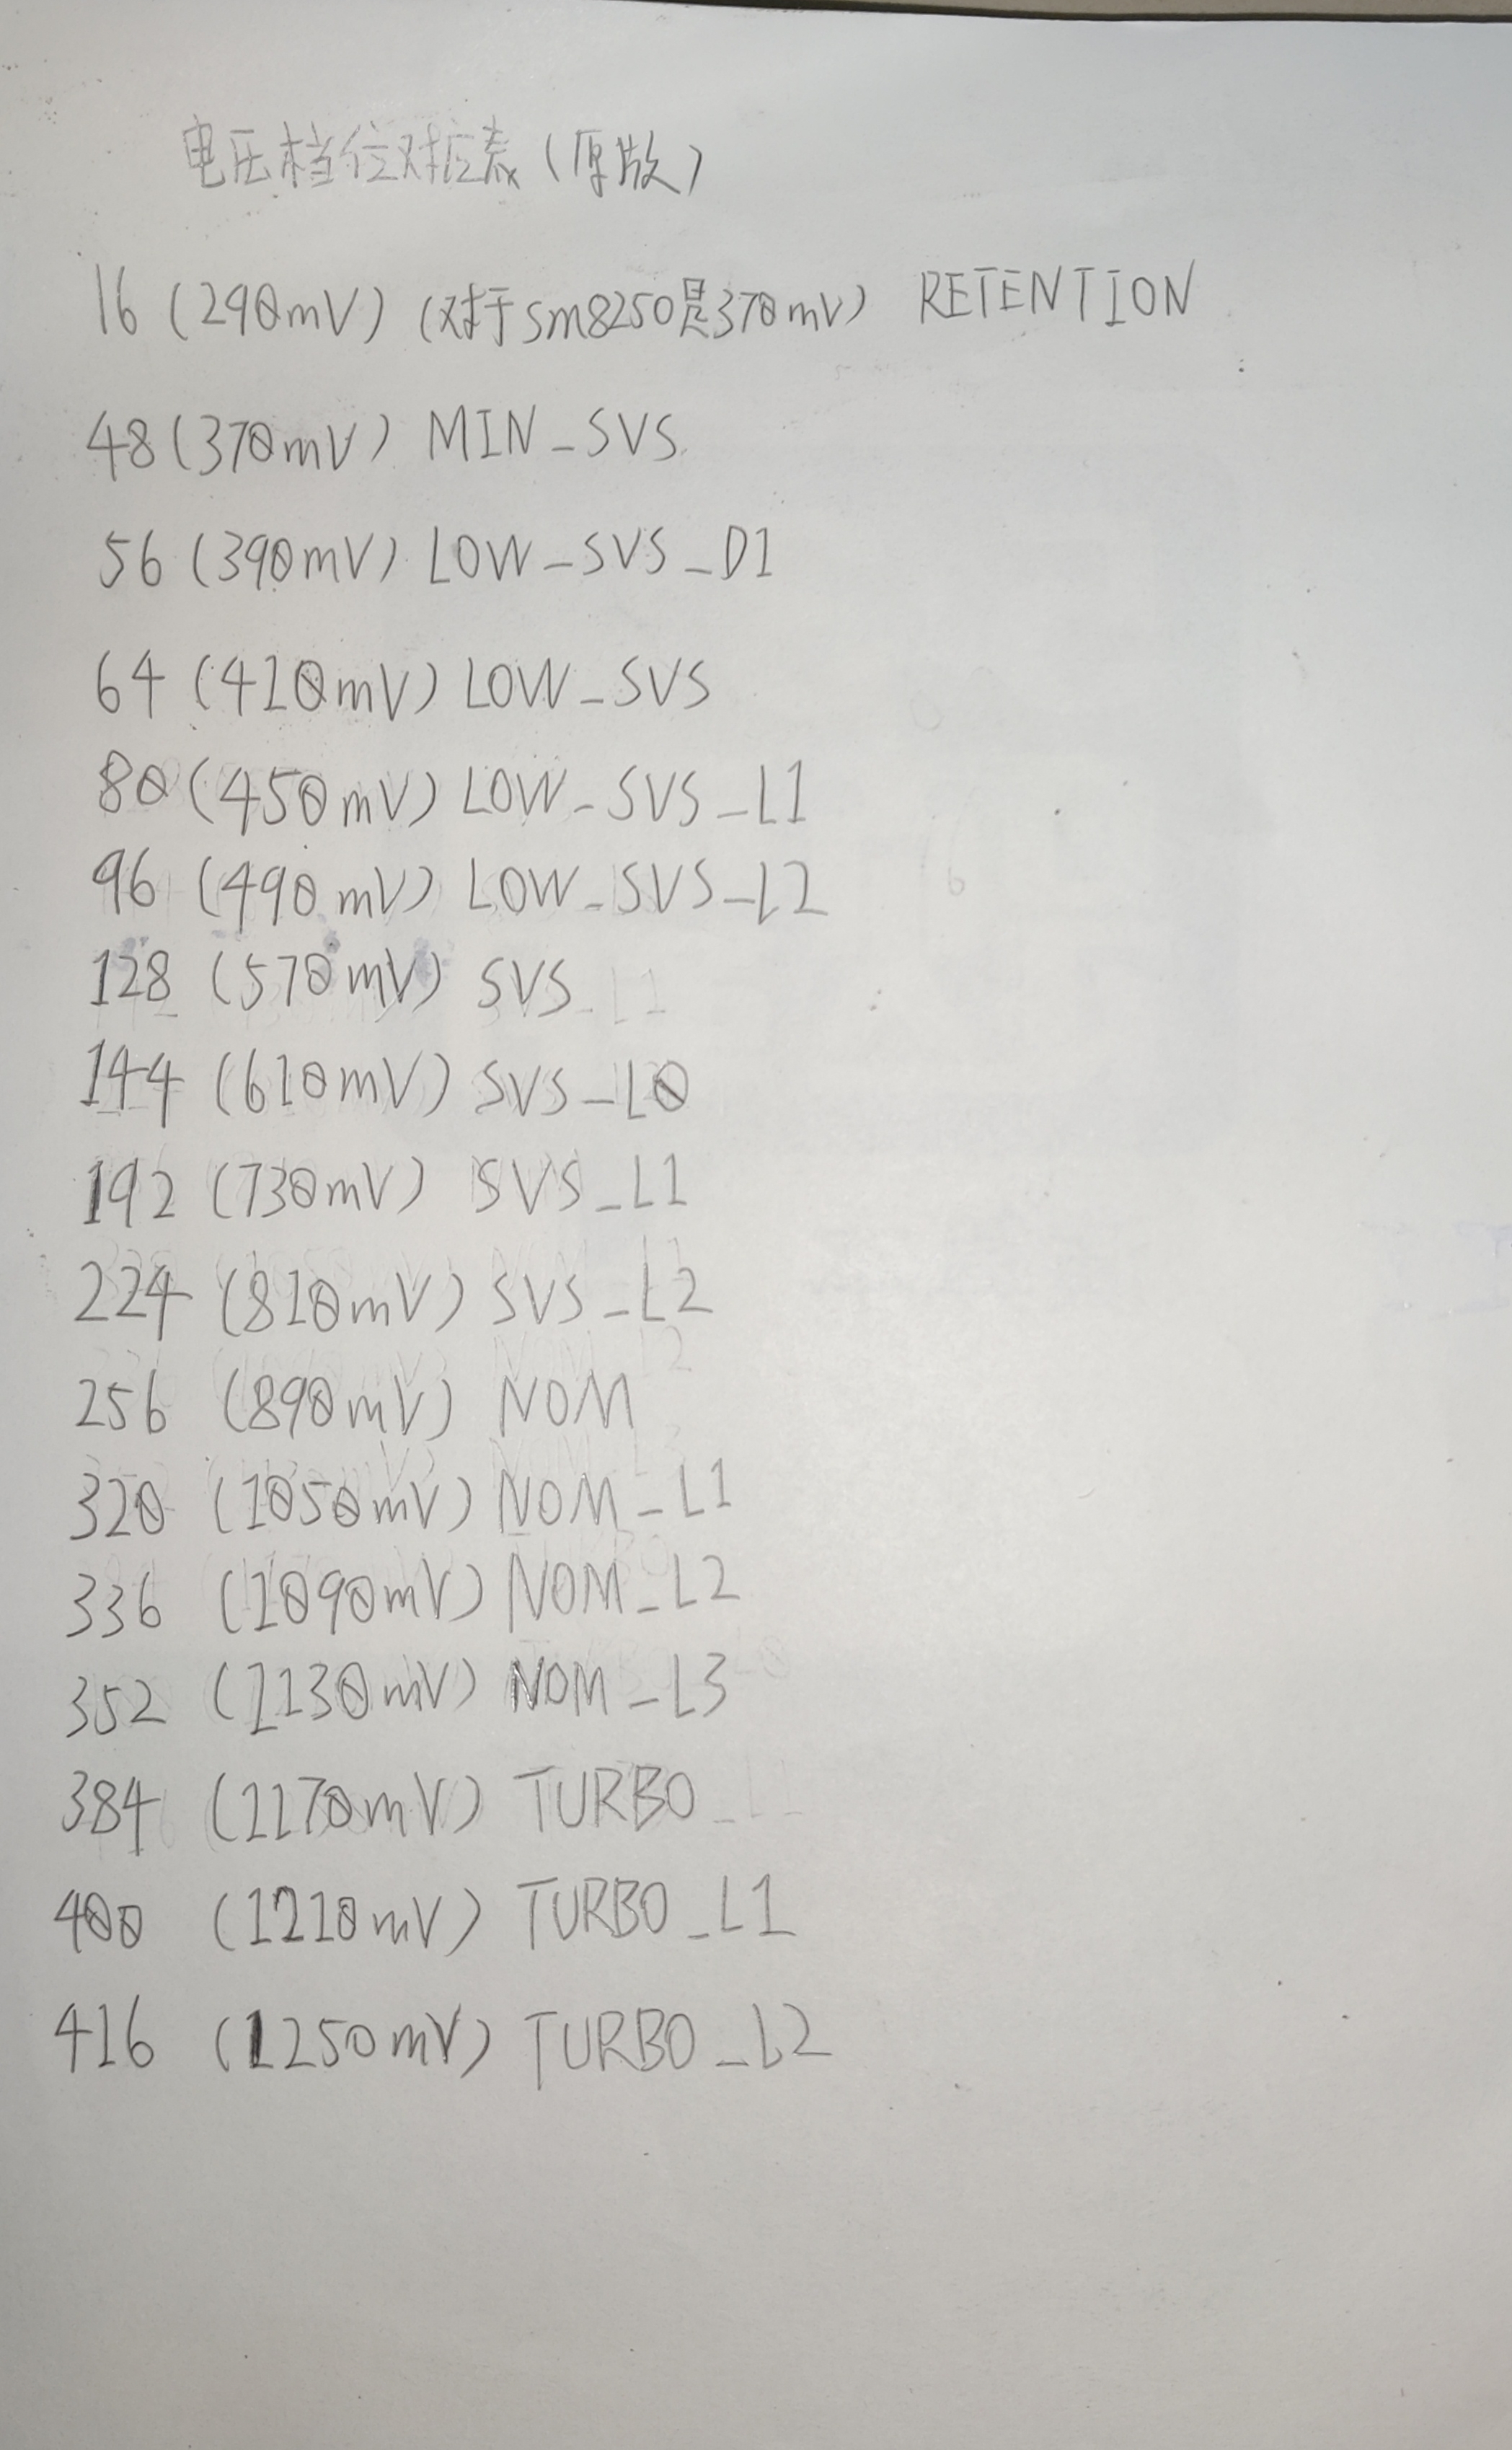 电压档位对应表(原版)
16(290mV)(对于sm8250是370mV) RETENTION
48(370mV) MIN_SVS
56(390mV) LOW_SVS_D1
64(410mV) LOW_SVS
80(450mV) LOW_SVS_L1
96(490mV) LOW_SVS_L2
128(570mV) SVS
144(610mV) SVS_L0
192(730mV) SVS_L1
224(810mV) SVS_L2
256(890mV) NOM
320(1050mV) NOM_L1
336(1090mV) NOM_L2
352(1130mV) NOM_L3
384(1170mV) TURBO
400(1210mV) TURBO_L1
416(1250mV) TURBO_L2